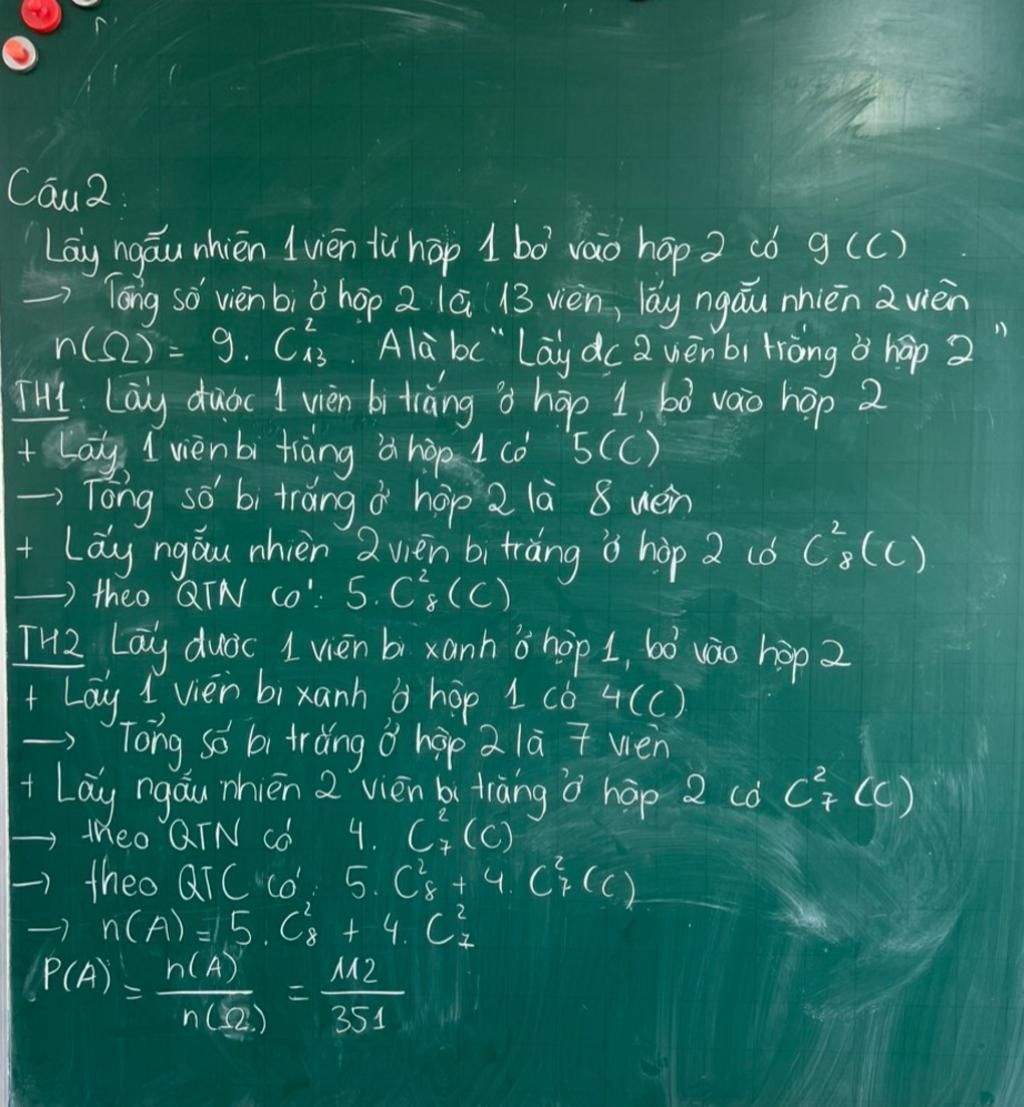 Câu 2:
Lấy ngẫu nhiên 1 viên từ hộp 1 bỏ vào hộp 2 có 9 (C)
→ Tổng số viên bi ở hộp 2 là 13 viên, lấy ngẫu nhiên 2 viên
n(Ω) = 9. C²₁₃. A là bc "Lấy đc 2 viên bi trắng ở hộp 2"
TH1: Lấy được 1 viên bi trắng ở hộp 1, bỏ vào hộp 2
+ Lấy 1 viên bi trắng ở hộp 1 có 5(C)
→ Tổng số bi trắng ở hộp 2 là 8 viên
+ Lấy ngẫu nhiên 2 viên bi trắng ở hộp 2 có C²₈(C)
→ theo QTN có: 5. C²₈(C)
TH2 Lấy được 1 viên bi xanh ở hộp 1, bỏ vào hộp 2
+ Lấy 1 viên bi xanh ở hộp 1 có 4(C)
→ Tổng số bi trắng ở hộp 2 là 7 viên
+ Lấy ngẫu nhiên 2 viên bi trắng ở hộp 2 có C²₇ (C)
→ theo QTN có 4. C²₇(C)
→ theo QTC có: 5. C²₈ + 4. C²₇(C)
→ n(A) = 5. C²₈ + 4. C²₇
P(A) = n(A)/n(Ω) = 112/351